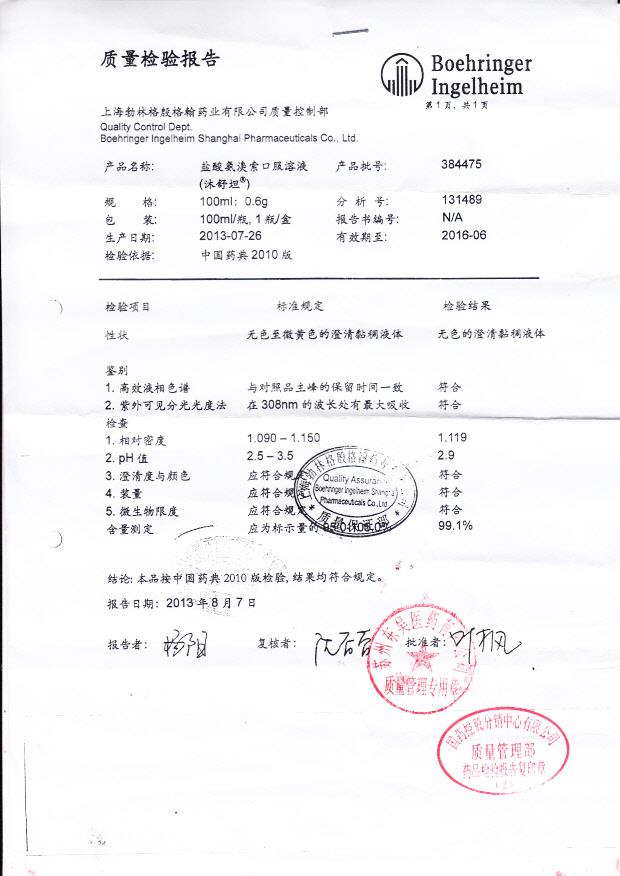 质量检验报告
Boehringer
Ingelheim
第1页, 共1页
上海勃林格殷格翰药业有限公司质量控制部
Quality Control Dept.
Boehringer Ingelheim Shanghai Pharmaceuticals Co., Ltd.
产品名称: 盐酸氨溴索口服溶液 产品批号: 384475
(沐舒坦®)
规 格: 100ml: 0.6g 分 析 号: 131489
包 装: 100ml/瓶, 1瓶/盒 报告书编号: N/A
生产日期: 2013-07-26 有效期至: 2016-06
检验依据: 中国药典2010版
检验项目 标准规定 检验结果
性状 无色至微黄色的澄清黏稠液体 无色的澄清黏稠液体
鉴别
1. 高效液相色谱 与对照品主峰的保留时间一致 符合
2. 紫外可见分光光度法 在308nm的波长处有最大吸收 符合
检查
1. 相对密度 1.090 – 1.150 1.119
2. pH值 2.5 – 3.5 2.9
3. 澄清度与颜色 应符合规定 符合
4. 装量 应符合规定 符合
5. 微生物限度 应符合规定 符合
含量测定 应为标示量的 99.1%
Quality Assurance
Boehringer Ingelheim Shanghai
Pharmaceuticals Co.,Ltd
质量保证部
结论: 本品按中国药典2010版检验, 结果均符合规定。
报告日期: 2013年8月7日
报告者: 复核者: 批准者:
苏州东吴医药有限公司
质量管理专用章
国药控股分销中心有限公司
质量管理部
药品检验报告复印章